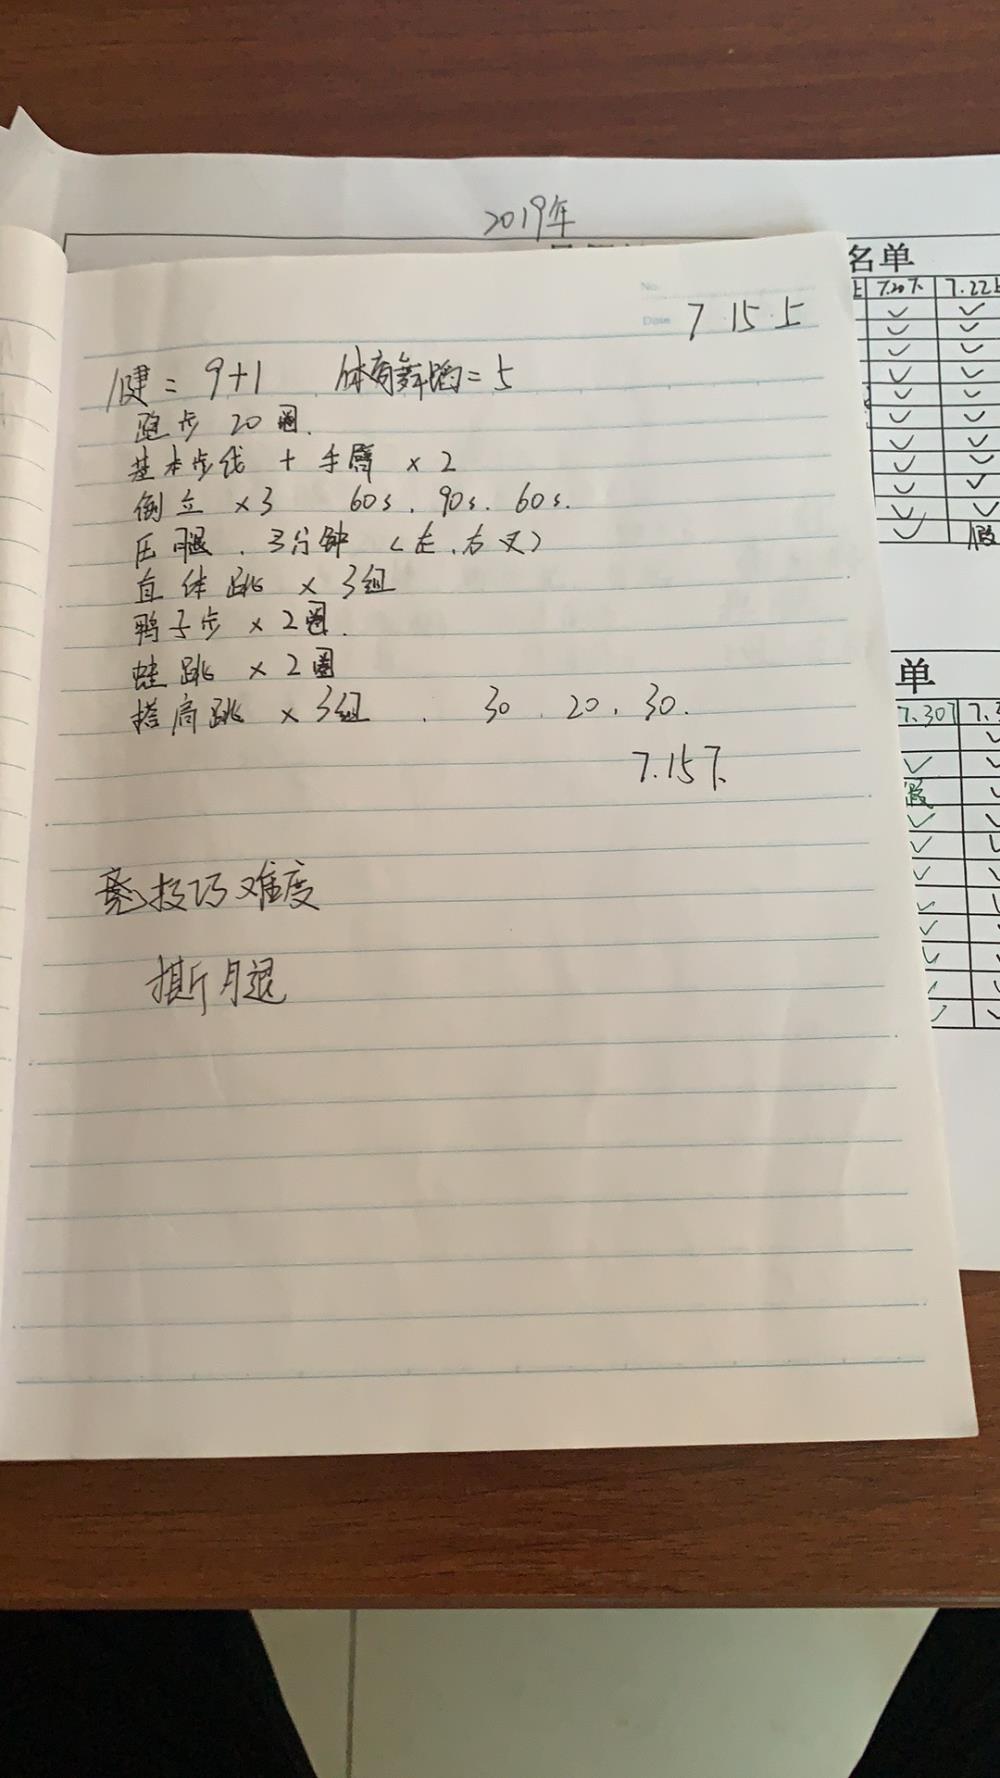 2019年
名单
上 7.20下 7.22上
假
No.
Date 7.15.上
健 = 9+1 体育舞蹈 = 5
跑步 20圈.
基本步线 + 手臂 × 2
倒立 ×3 60s. 90s. 60s.
压腿. 3分钟 (左、右叉)
直体跳 × 3组
鸭子步 × 2圈.
蛙跳 × 2圈
搭肩跳 × 3组. 30. 20. 30.
7.15下
竞技巧难度
撕腿
单
7.30下 7.3
假